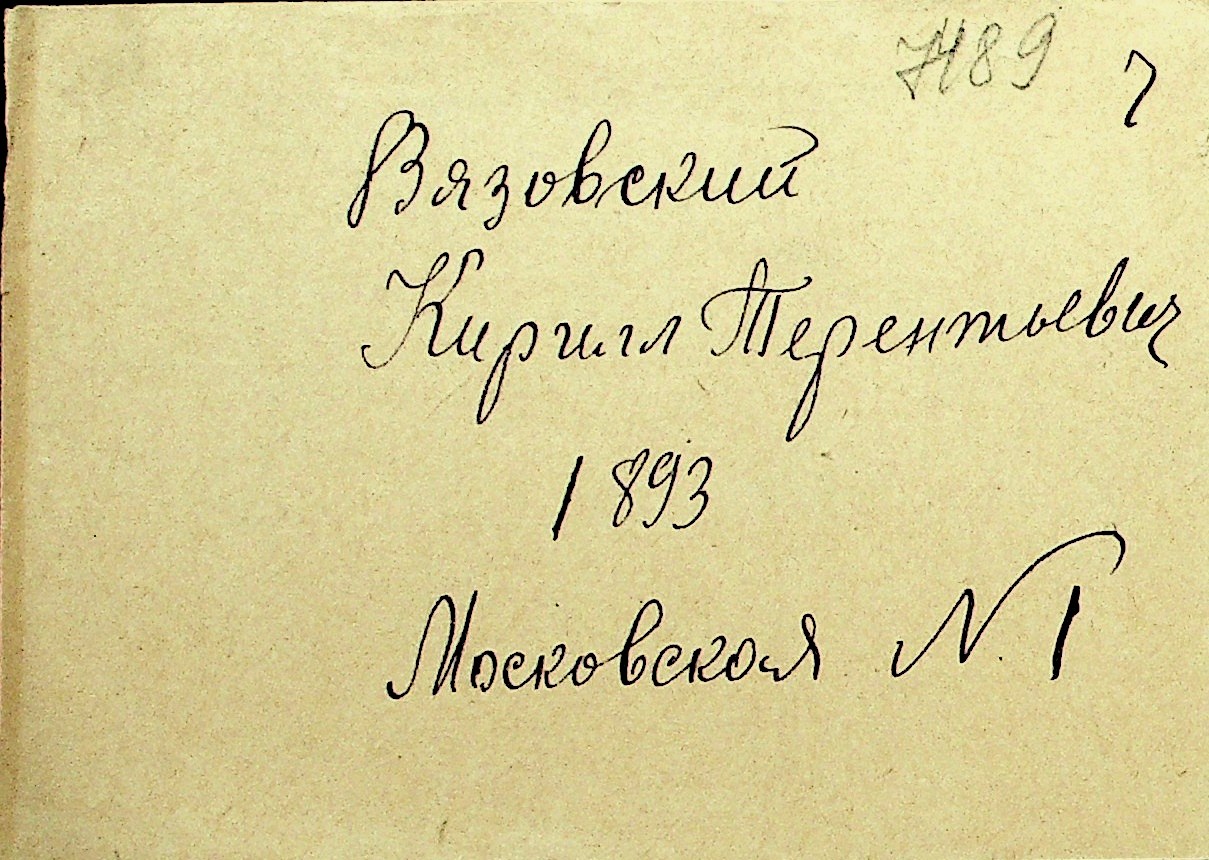 7489 7
Вязовский
Кирилл Терентьевич
1893
Московская N 1